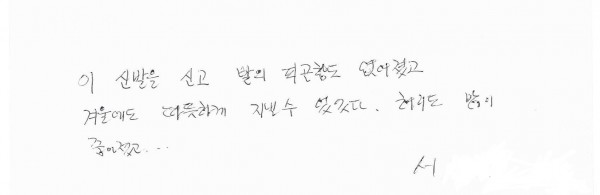 이 신발을 신고 발의 피곤함도 없어졌고
겨울에도 따뜻하게 지낼 수 있었다. 허리도 많이
좋아졌고...
서